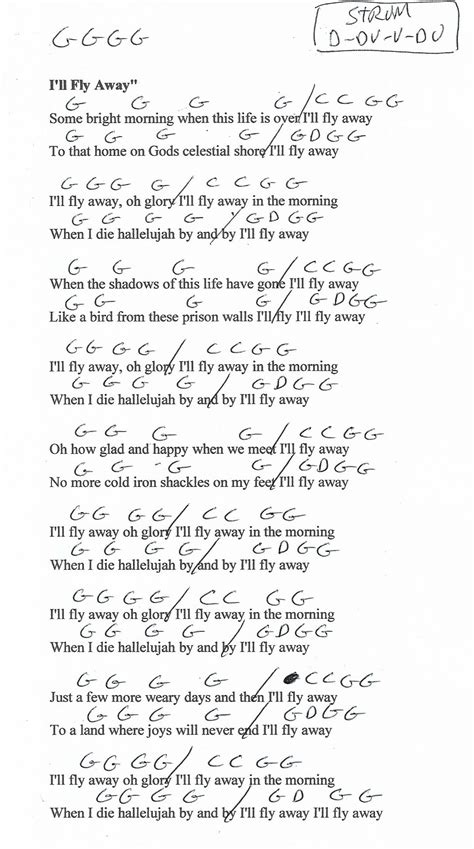 G G G G
STRUM
D-DU-U-DU
I'll Fly Away"
G G G G / C C G G
Some bright morning when this life is over I'll fly away
G G G G / G D G G
To that home on Gods celestial shore I'll fly away
G G G G / C C G G
I'll fly away, oh glory I'll fly away in the morning
G G G G / G D G G
When I die hallelujah by and by I'll fly away
G G G G / C C G G
When the shadows of this life have gone I'll fly away
G G G G / G D G G
Like a bird from these prison walls I'll fly I'll fly away
G G G G / C C G G
I'll fly away, oh glory I'll fly away in the morning
G G G G / G D G G
When I die hallelujah by and by I'll fly away
G G G G / C C G G
Oh how glad and happy when we meet I'll fly away
G G G G / G D G G
No more cold iron shackles on my feet I'll fly away
G G G G / C C G G
I'll fly away oh glory I'll fly away in the morning
G G G G / G D G G
When I die hallelujah by and by I'll fly away
G G G G / C C G G
I'll fly away oh glory I'll fly away in the morning
G G G G / G D G G
When I die hallelujah by and by I'll fly away
G G G G / C C G G
Just a few more weary days and then I'll fly away
G G G G / G D G G
To a land where joys will never end I'll fly away
G G G G / C C G G
I'll fly away oh glory I'll fly away in the morning
G G G G / G D G G
When I die hallelujah by and by I'll fly away I'll fly away